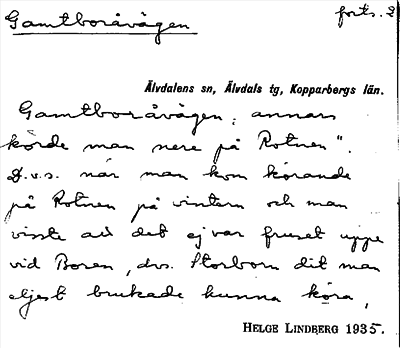 Gamtboråvägen
forts. 2
Älvdalens sn, Älvdals tg, Kopparbergs län.
Gamtboråvägen; annars
körde man nere på Rotnen".
D.v.s. när man kom körande
på Rotnen på vintern och man
visste att det ej var fruset uppe
vid Boren, dvs. Storborn dit man
eljest brukade kunna köra,
HELGE LINDBERG 1935.